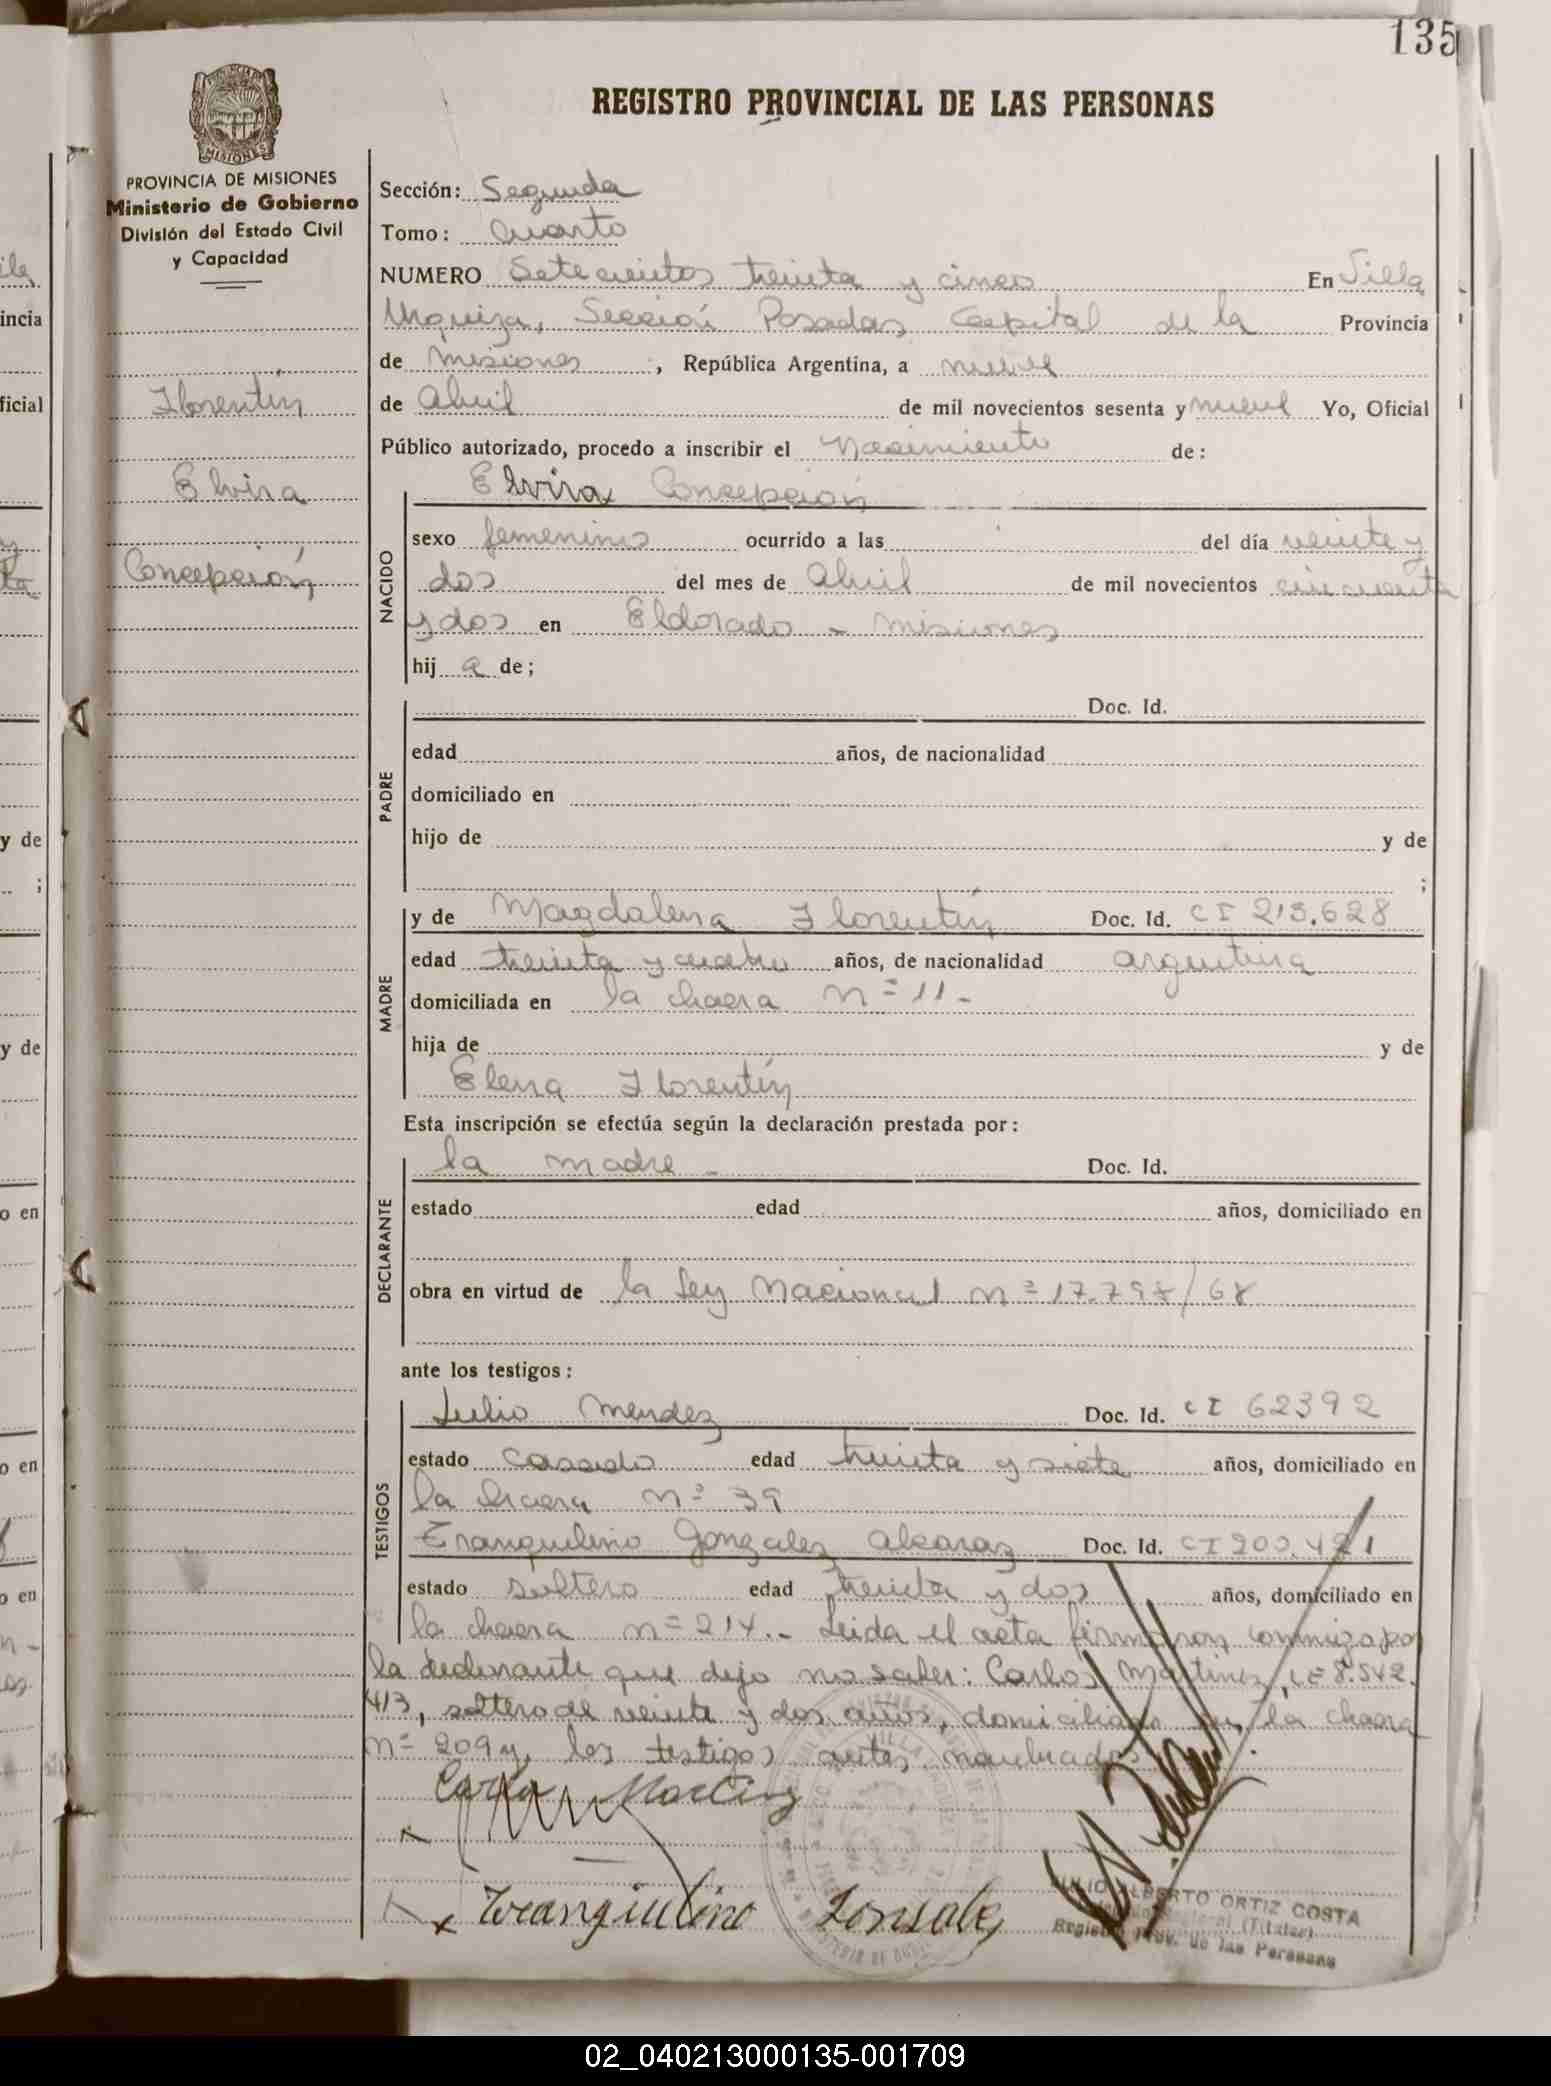 135
REGISTRO PROVINCIAL DE LAS PERSONAS
MISIONES
PROVINCIA DE MISIONES
Ministerio de Gobierno
División del Estado Civil
y Capacidad
Florentín
Elvira
Concepción
Sección: Segunda
Tomo: Cuarto
NUMERO Setecientos treinta y cinco En Villa
Urquiza, Sección Posadas Capital de la Provincia
de misiones, República Argentina, a nueve
de Abril de mil novecientos sesenta y nueve Yo, Oficial
Público autorizado, procedo a inscribir el Nacimiento de:
Elvira Concepción
NACIDO
sexo femenino ocurrido a las del día veinte y
dos del mes de Abril de mil novecientos cincuenta
y dos en Eldorado - misiones
hij a de;
PADRE
Doc. Id.
edad años, de nacionalidad
domiciliado en
hijo de y de
;
MADRE
y de Magdalena Florentín Doc. Id. CI 213.628
edad treinta y cuatro años, de nacionalidad argentina
domiciliada en la chacra nº 11-
hija de y de
Elena Florentín
Esta inscripción se efectúa según la declaración prestada por:
DECLARANTE
la madre - Doc. Id.
estado edad años, domiciliado en
obra en virtud de la Ley Nacional nº 17.798/68
ante los testigos:
TESTIGOS
Julio Mendez Doc. Id. CI 62392
estado casado edad treinta y siete años, domiciliado en
la chacra nº 39
Tranquilino Gonzalez Alcaraz Doc. Id. CI 200.421
estado soltero edad treinta y dos años, domiciliado en
la chacra nº 214.- Leida el acta firmaron conmigo por
la declarante que dijo no saber: Carlos Martinez, LE 8.542.
413, soltero de veinte y dos años, domiciliado en la chacra
nº 209 y, los testigos antes nombrados
Carlos Martinez
Tranquilino Gonzalez
JULIO ALBERTO ORTIZ COSTA
(Titular)
Registro Prov. de las Personas
incia
ficial
y de
;
y de
o en
o en
o en
02_040213000135-001709